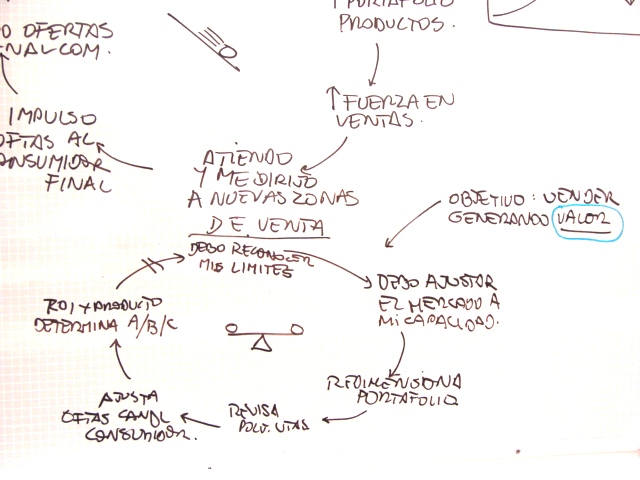 O OFERTAS
NAL COM.
PORTAFOLIO
PRODUCTOS.
↑ FUERZA EN
VENTAS.
IMPULSO
OFTAS AL
CONSUMIDOR
FINAL
ATIENDO
Y ME DIRIJO
A NUEVAS ZONAS
DE VENTA
OBJETIVO: VENDER
GENERANDO VALOR
DEBO RECONOCER
MIS LIMITES
DEBO AJUSTAR
EL MERCADO A
MI CAPACIDAD.
REDIMENSIONA
PORTAFOLIO
REVISA
POLV. VTAS
AJUSTA
OFTAS CANAL
CONSUMIDOR.
ROI Y PRODUCTO
DETERMINA A/B/C